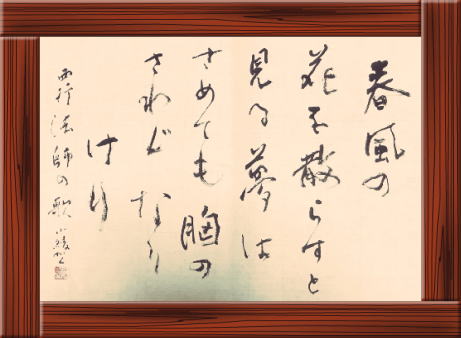 春風の
花を散らすと
見る夢は
さめても胸の
さわぐなり
けり
西行法師の歌